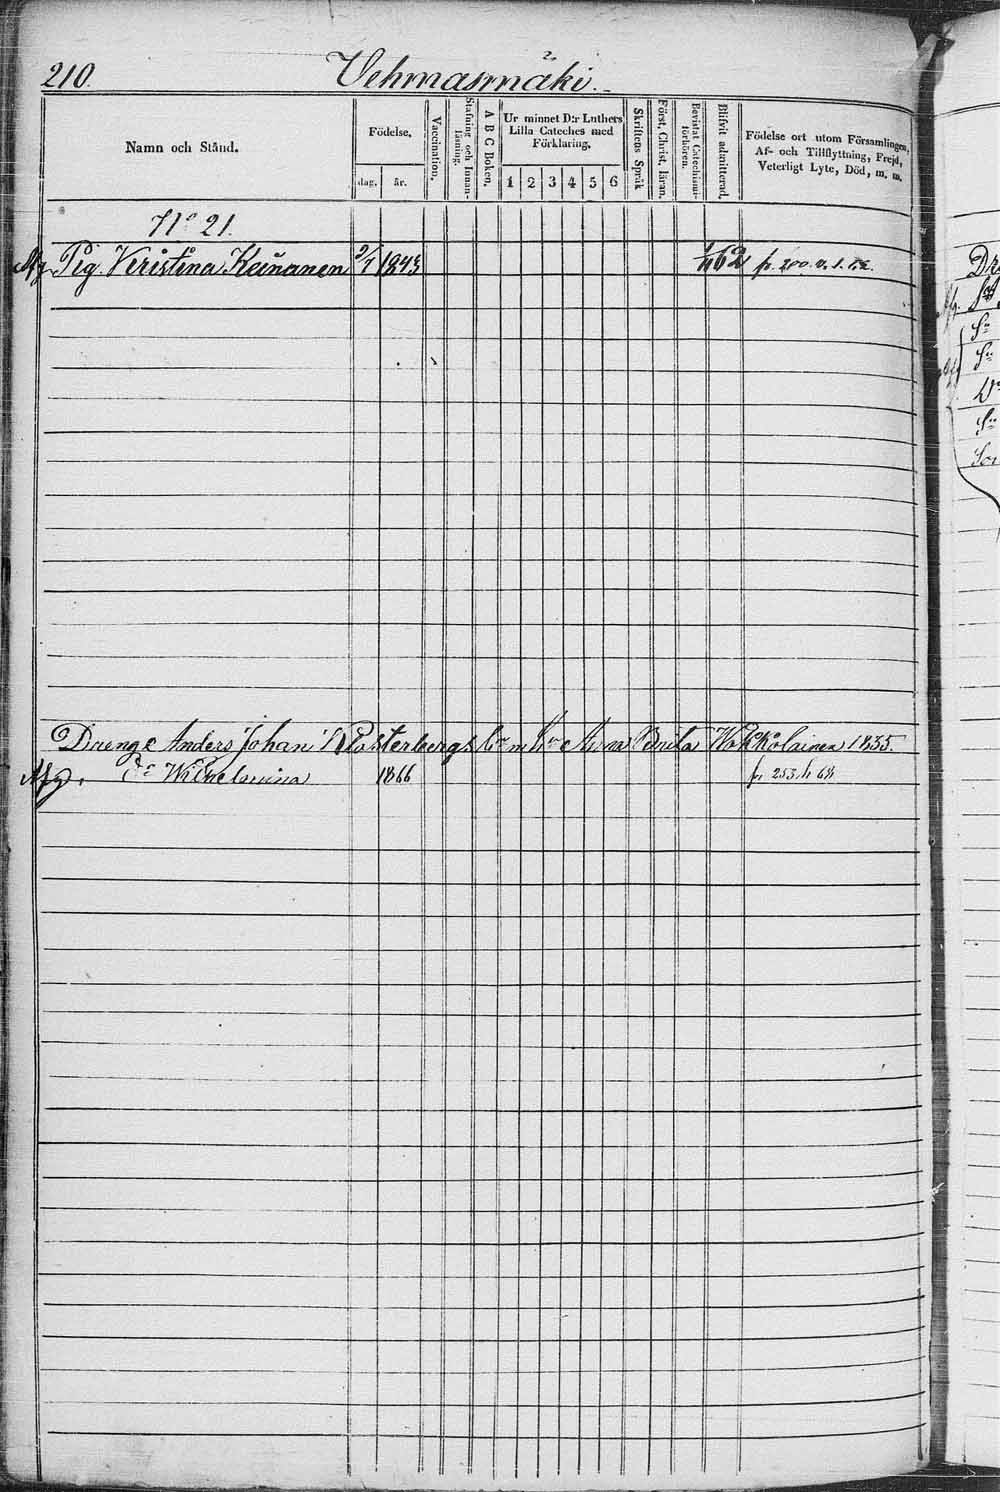 210.
Vehmasmäki.
Namn och Stånd.
Födelse,
dag.
år.
Vaccination.
Stafning och Innan-
läsning.
A B C Boken.
Ur minnet D:r Luthers
Lilla Cateches med
Förklaring.
1 2 3 4 5 6
Skriftens Språk
Först. Christ. läran.
Bevistat Catechismi-
förhören.
Blifvit admitterad.
Födelse ort utom Församlingen,
Af- och Tillflyttning, Frejd,
Veterligt Lyte, Död, m. m.
No 21.
Afg. Pig. Kristina Keinanen 1843 62 fr. 200.
Drenge Anders Johan Pasterbergs Anna Brita 1835.
Afg. Dr Wilhelmina 1866 fr 253